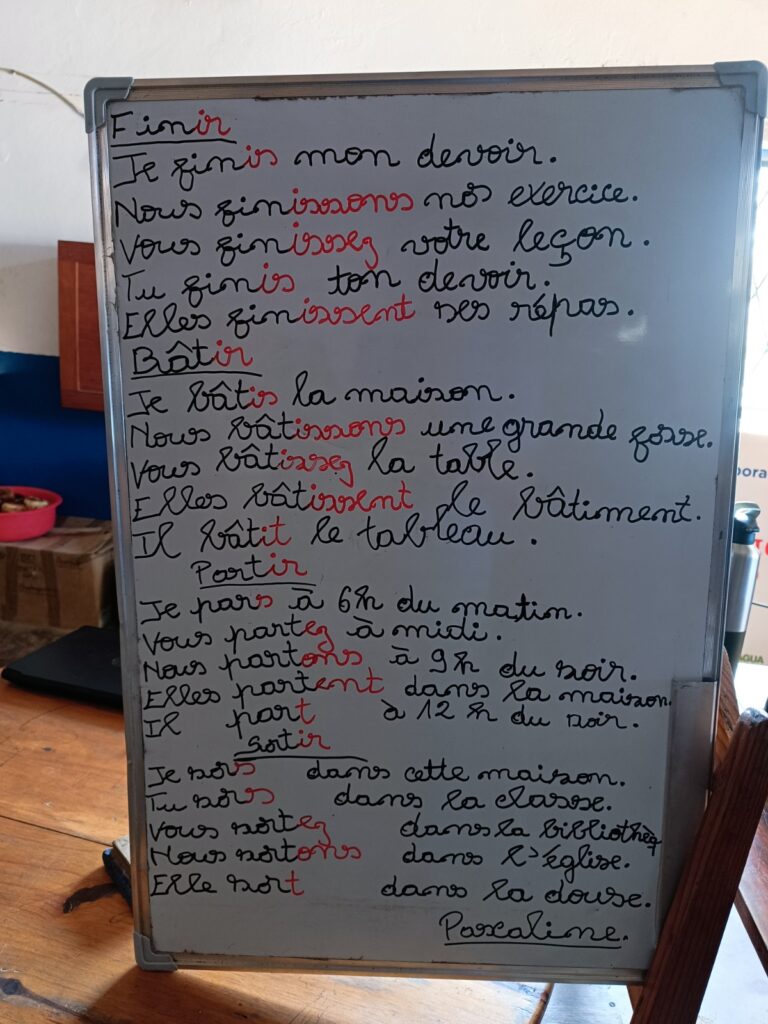 Finir
Je finis mon devoir.
Nous finissons nos exercice.
Vous finissez votre leçon.
Tu finis ton devoir.
Elles finissent ses répas.
Bâtir
Je bâtis la maison.
Nous bâtissons une grande fosse.
Vous bâtissez la table.
Elles bâtissent le bâtiment.
Il bâtit le tableau.
Partir
Je pars à 6h du matin.
Vous partez à midi.
Nous partons à 9h du soir.
Elles partent dans la maison.
Il part à 12h du soir.
Sortir
Je sors dans cette maison.
Tu sors dans la classe.
Vous sortez dans la bibliothèq
Nous sortons dans l'église.
Elle sort dans la douse.
Pascaline.